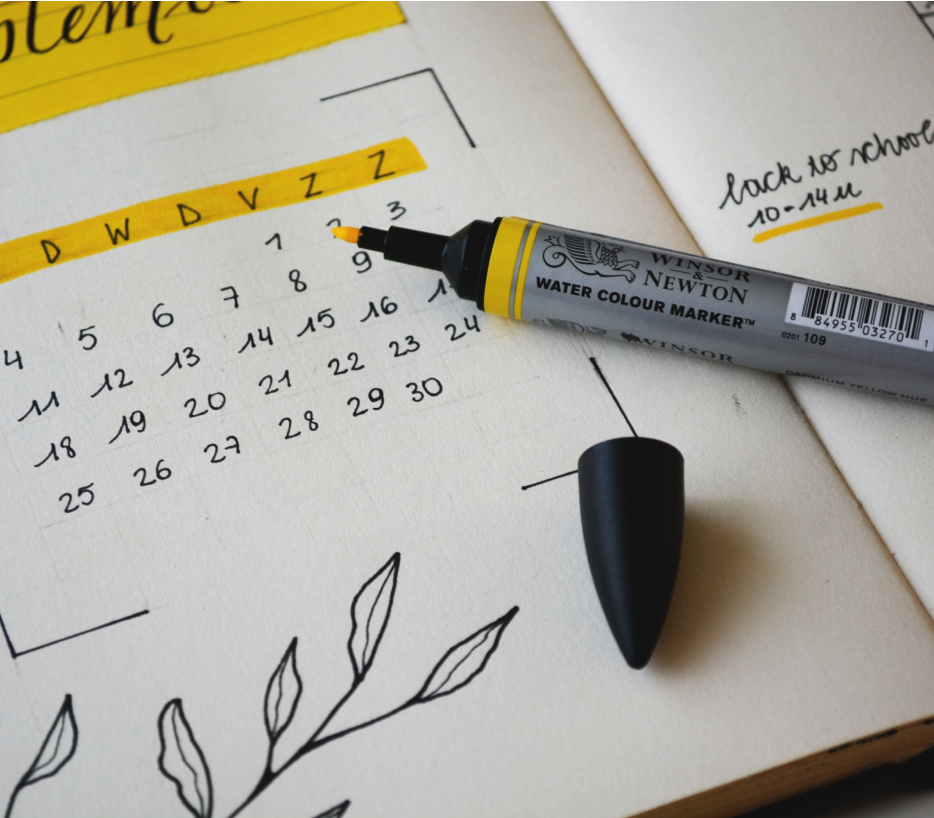 ptem
D W D V Z Z
1 2 3
4 5 6 7 8 9
11 12 13 14 15 16
18 19 20 21 22 23 24
25 26 27 28 29 30
back to school
10-14u
WINSOR
&
NEWTON
WATER COLOUR MARKER™
8 84955 03270 1
0201 109
WINSOR
CADMIUM YELLOW HUE